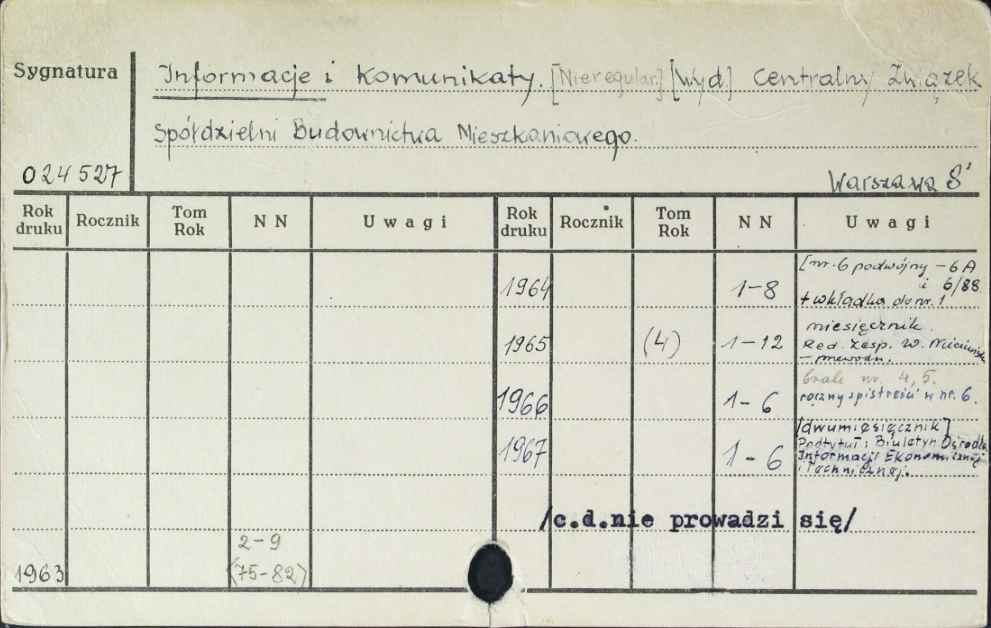 Sygnatura
Informacje i Komunikaty. [Nieregular.] [Wyd.] Centralny Związek
Spółdzielni Budownictwa Mieszkaniowego.
024527
Warszawa 8°
Rok druku Rocznik Tom Rok N N Uwagi Rok druku Rocznik Tom Rok N N Uwagi
1964 1-8 [nr. 6 podwójny - 6 A
i 6/88
+ wkładka do nr. 1
1965 (4) 1-12 miesięcznik.
Red. zesp. W.
- przewodn.
1966 1-6 brak nr. 4, 5.
roczny spis treści w nr. 6.
1967 1-6 [dwumiesięcznik]
Podtytuł: Biuletyn Ośrodka
Informacji Ekonomicznej
i Technicznej.
/c.d.nie prowadzi się/
1963 2-9
(75-82)